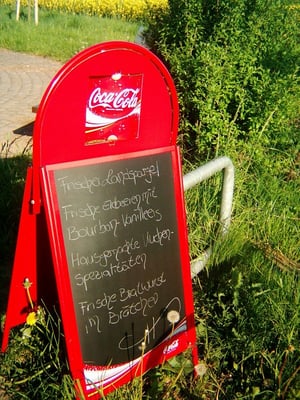 Coca-Cola
Frischer Landspargel
Frische Erdbeeren mit
Bourbon-Vanilleeis
Hausgemachte Kuchen-
spezialitäten
Frische Bratwurst
im Brötchen